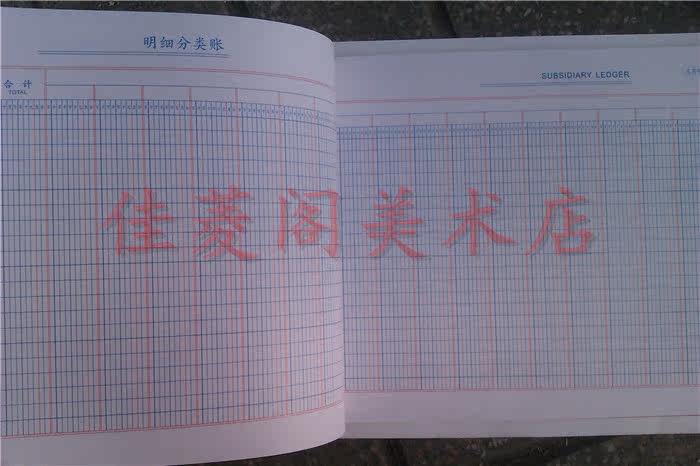 明细分类账
合计
TOTAL
SUBSIDIARY LEDGER
佳菱阁美术店